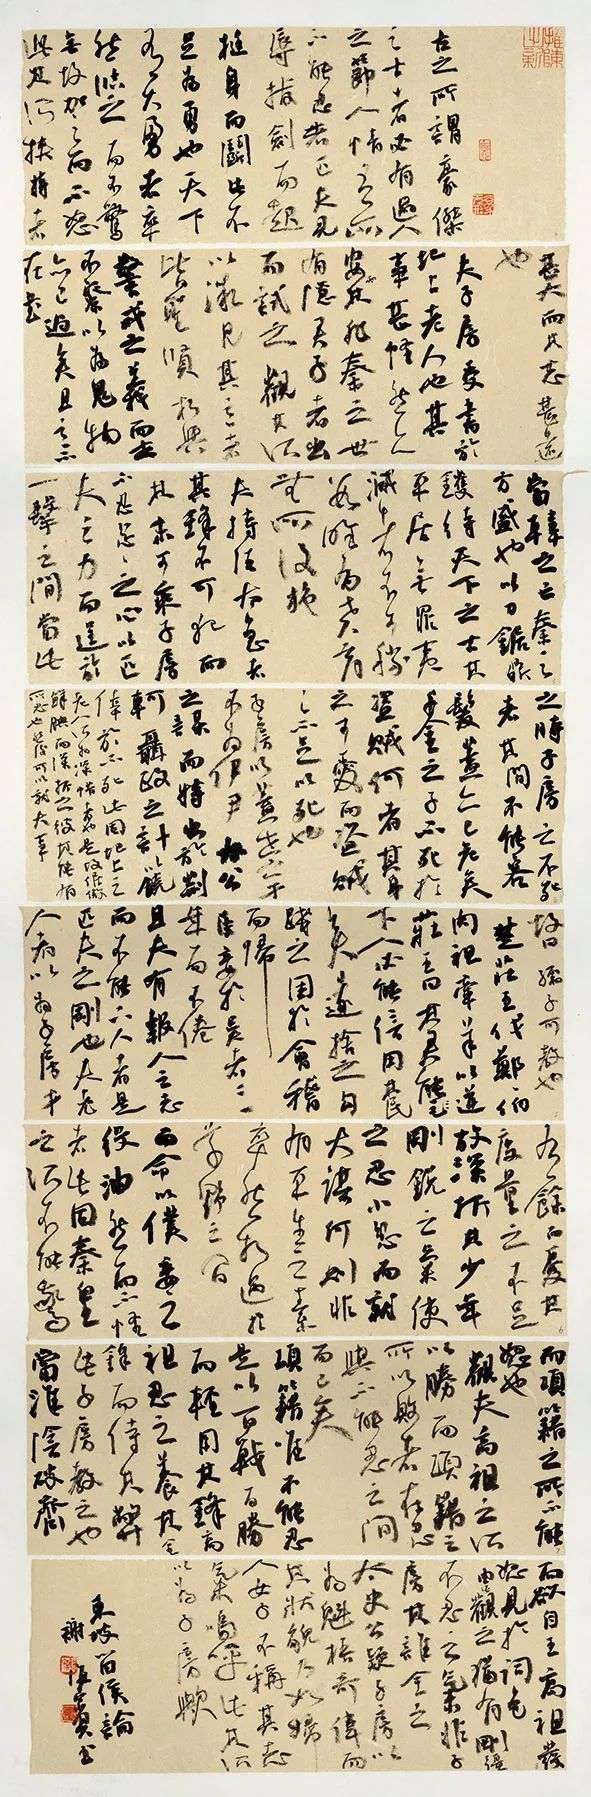 古之所謂豪傑
之士者必有過人
之節人情有所
不能忍者匹夫見
辱拔劍而起
挺身而鬭此不
足為勇也天下
有大勇者卒
然臨之而不驚
無故加之而不怒
此其所挾持者
甚大而其志甚遠
也
夫子房受書於
圯上老人也其
事甚怪然亦
安知非秦之世
有隱君子者出
而試之觀其所
以微見其意者
皆聖賢相與
警戒之義而世
不察以為鬼物
亦已過矣且其意不
在書
當韓之亡秦之
方盛也以刀鋸鼎
鑊待天下之士其
平居無罪夷
滅者不可勝
數雖有賁育
無所復施
夫持法太急者
其鋒不可犯而
其末可乘子房
不忍忿忿之心以匹
夫之力而逞於
一擊之間當此
之時子房之不死
者其間不能容
髮蓋亦已危矣
千金之子不死於
盜賊何者其身
之可愛而盜賊
之不足以死也
子房以蓋世之才
不為伊尹太公
之謀而特出於荊
軻聶政之計以僥
倖於不死此固圯上之
老人所為深惜者也是故倨傲
鮮腆而深折之彼其能有
所忍也然後可以就大事
故曰孺子可教也
楚莊王伐鄭鄭伯
肉袒牽羊以逆
莊王曰其君能
下人必能信用其民
矣遂捨之句
踐之困於會稽
而歸
臣妾於吳者三
年而不倦
且夫有報人之志
而不能下人者是
匹夫之剛也夫老
人者以為子房才
有餘而憂其
度量之不足
故深折其少年
剛銳之氣使
之忍小忿而就
大謀何則非
有平生之素
卒然相遇於
草野之間
而命以僕妾之
役油然而不怪
者此固秦皇
之所不能驚
而項籍之所不能
怒也
觀夫高祖之所
以勝而項籍之
所以敗者在能忍
與不能忍之間
而已矣
項籍惟不能忍
是以百戰百勝
而輕用其鋒高
祖忍之養其全
鋒而待其弊
此子房教之也
當淮陰破齊
而欲自王高祖發
怒見於詞色
由是觀之猶有剛彊
不忍之氣非子
房其誰全之
太史公疑子房以
為魁梧奇偉而
其狀貌乃如婦
人女子不稱其志
氣嗚呼此其所
以為子房歟
東坡留侯論
謝寅書